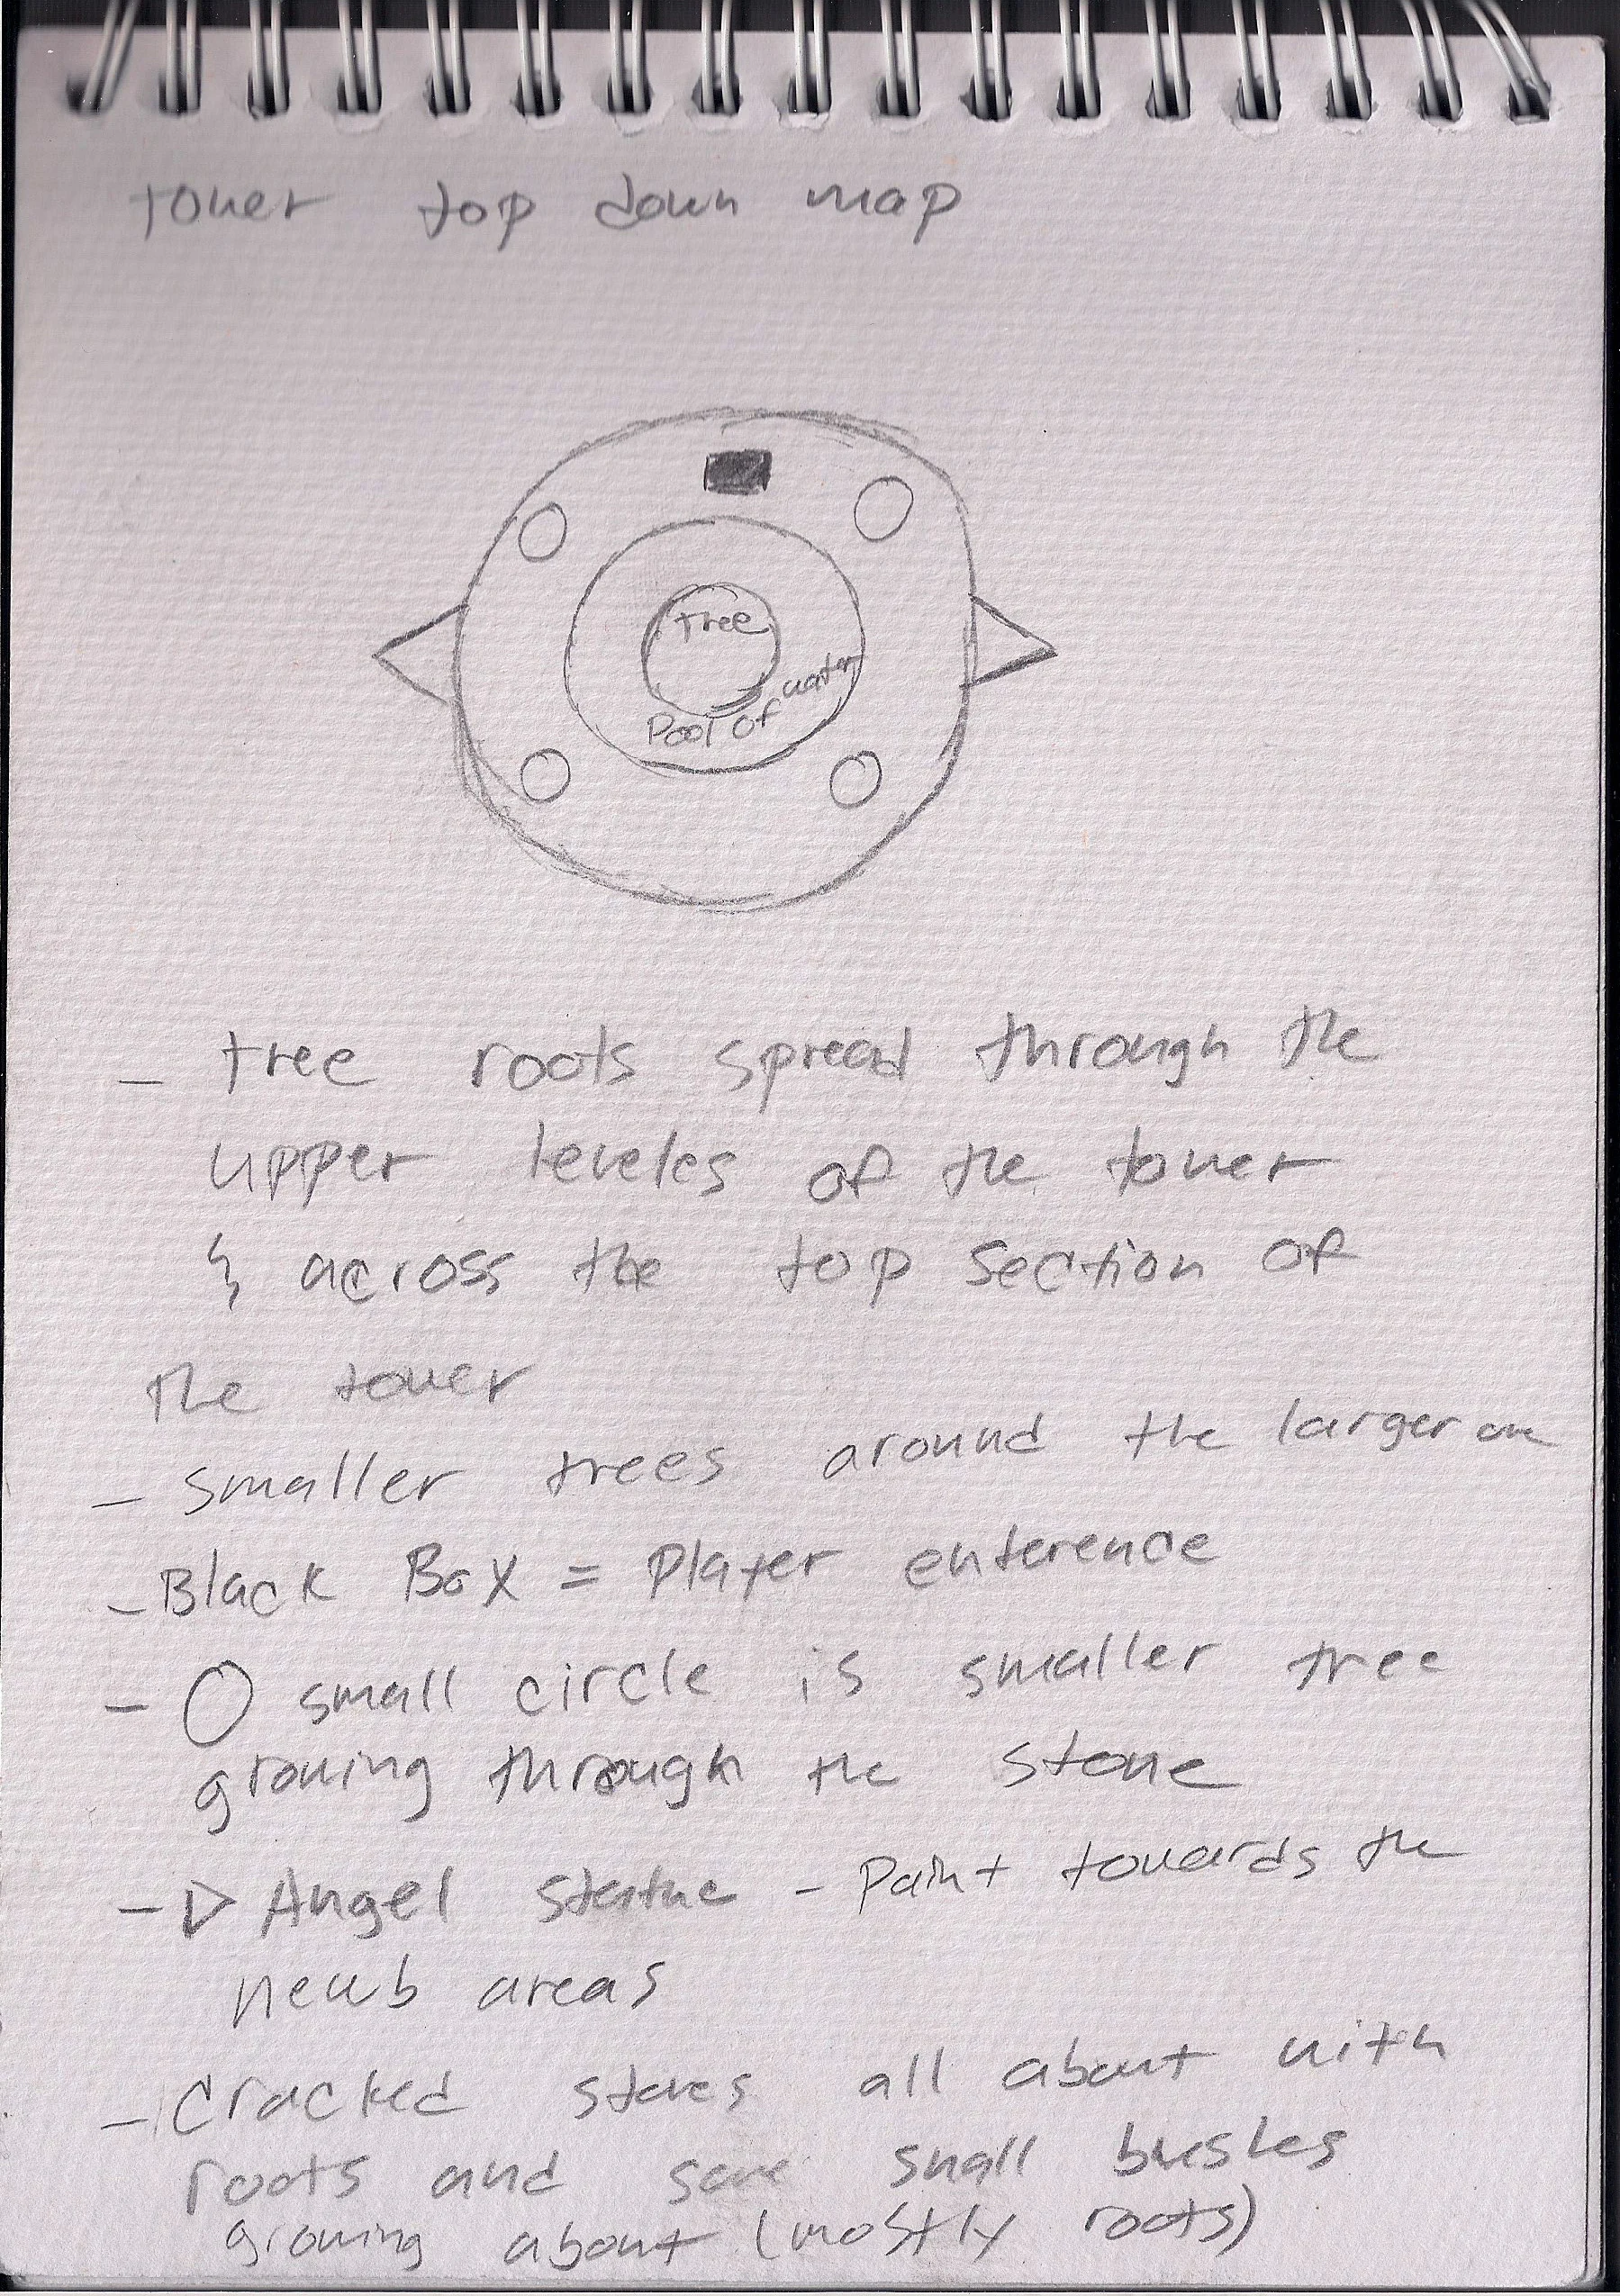 tower top down map
tree
Pool of water
- tree roots spread through the
upper leveles of the tower
& across the top section of
the tower
- smaller trees around the larger one
- Black Box = Player enterence
- O small circle is smaller tree
growing through the stone
- ▷ Angel statue - Point towards the
newb areas
- Cracked stones all about with
roots and some small bushes
growing about (mostly roots)